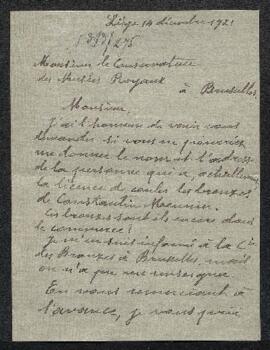 Liège 14 décembre 1921
Monsieur le Conservateur
des Musées Royaux
à Bruxelles
Monsieur,
J'ai l'honneur de venir vous
demander si vous ne pourriez
me donner le nom et l'adresse
de la personne qui a, actuellement,
la licence de couler les bronzes
de Constantin Meunier.
Ces bronzes sont ils encore dans
le commerce?
Je m'en suis informé à la Cie
des Bronzes à Bruxelles, mais
on n'a pu me renseigner.
En vous remerciant à
l'avance, je vous prie